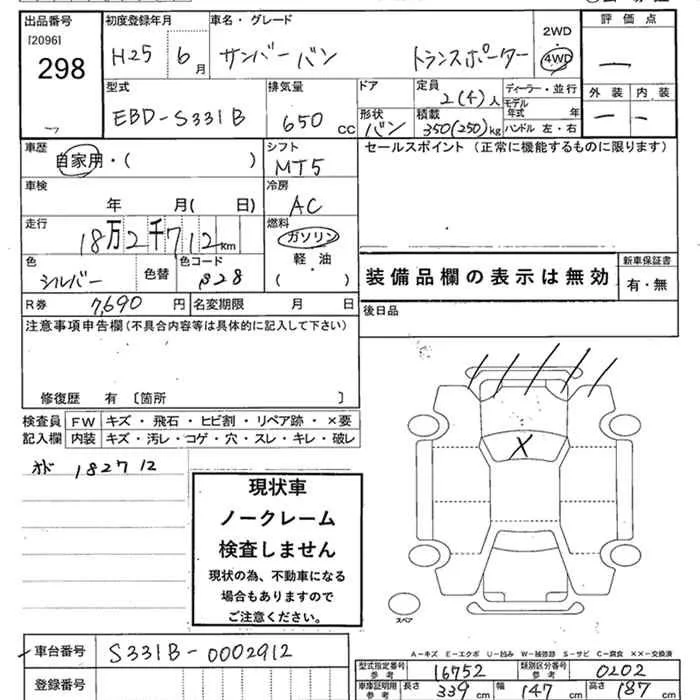 出品番号 初度登録年月 車名・グレード 評価点
[2096] 298
H25 6月 サンバーバン トランスポーター 2WD 4WD —
型式 排気量 ドア 定員 2(4)人 ディーラー・並行 外装 内装
EBD-S331B 650cc 形状 バン 積載 350(250)kg モデル年式 年 ハンドル 左・右 — -
車歴 シフト セールスポイント (正常に機能するものに限ります)
自家用・( ) MT5
車検 冷房
年 月( 日) AC
走行 燃料
18万2千712km ガソリン
色 色コード 軽油
シルバー 色替 S28 ( )
装備品欄の表示は無効 新車保証書
有・無
R券 7,690円 名変期限 月 日 後日品
注意事項申告欄(不具合内容等は具体的に記入して下さい)
修復歴 有 〔箇所 〕
検査員 FW キズ・飛石・ヒビ割・リペア跡・×要
記入欄 内装 キズ・汚レ・コゲ・穴・スレ・キレ・破レ
182712
X
現状車
ノークレーム
検査しません
現状の為、不動車になる
場合もありますので
ご注意ください。
スペア
A−キズ E−エクボ U−凹み W−補修跡 S−サビ C−腐食 ××−交換済
車台番号 S331B-0002912
型式指定番号 参考 16752 類別区分番号 参考 0202
登録番号 車庫証明用 参考 長さ 339cm 幅 147cm 高さ 187cm